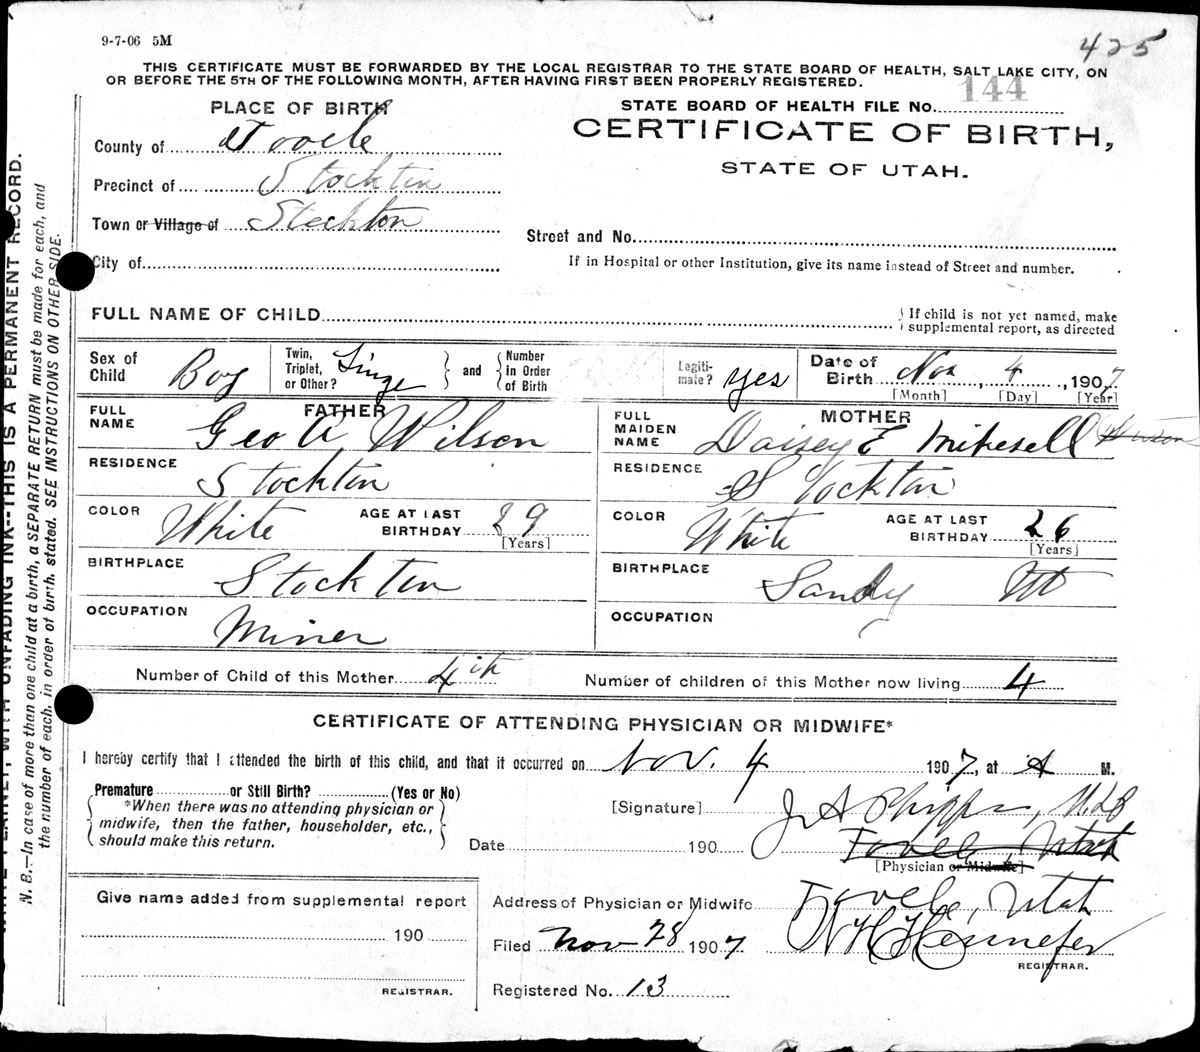 9-7-06 5M
425
THIS CERTIFICATE MUST BE FORWARDED BY THE LOCAL REGISTRAR TO THE STATE BOARD OF HEALTH, SALT LAKE CITY, ON
OR BEFORE THE 5TH OF THE FOLLOWING MONTH, AFTER HAVING FIRST BEEN PROPERLY REGISTERED.
144
PLACE OF BIRTH
STATE BOARD OF HEALTH FILE No.
CERTIFICATE OF BIRTH,
STATE OF UTAH.
County of Tooele
Precinct of Stockton
Town or Village of Stockton
Street and No.
City of
If in Hospital or other Institution, give its name instead of Street and number.
FULL NAME OF CHILD
If child is not yet named, make
supplemental report, as directed
Sex of Child Boy
Twin, Triplet, or Other? Single
and Number in Order of Birth
Legitimate? yes
Date of Birth Nov 4, 1907
[Month] [Day] [Year]
FATHER
FULL NAME Geo A Wilson
MOTHER
FULL MAIDEN NAME Daisey E Mikesell
RESIDENCE Stockton
RESIDENCE Stockton
COLOR White
AGE AT LAST BIRTHDAY 29
[Years]
COLOR White
AGE AT LAST BIRTHDAY 26
[Years]
BIRTHPLACE Stockton
BIRTHPLACE Sandy Ut
OCCUPATION Miner
OCCUPATION
Number of Child of this Mother 4th
Number of children of this Mother now living 4
CERTIFICATE OF ATTENDING PHYSICIAN OR MIDWIFE*
I hereby certify that I attended the birth of this child, and that it occurred on Nov. 4 1907, at A M.
Premature or Still Birth? (Yes or No)
*When there was no attending physician or
midwife, then the father, householder, etc.,
should make this return.
[Signature] J A Phipps, M.D.
Date 190
Tooele Utah
[Physician or Midwife]
Give name added from supplemental report
190
REGISTRAR.
Address of Physician or Midwife Tooele, Utah
Filed Nov 28 1907
REGISTRAR.
Registered No. 13
WRITE PLAINLY, WITH UNFADING INK—THIS IS A PERMANENT RECORD.
N. B.—In case of more than one child at a birth, a SEPARATE RETURN must be made for each, and
the number of each, in order of birth, stated. SEE INSTRUCTIONS ON OTHER SIDE.